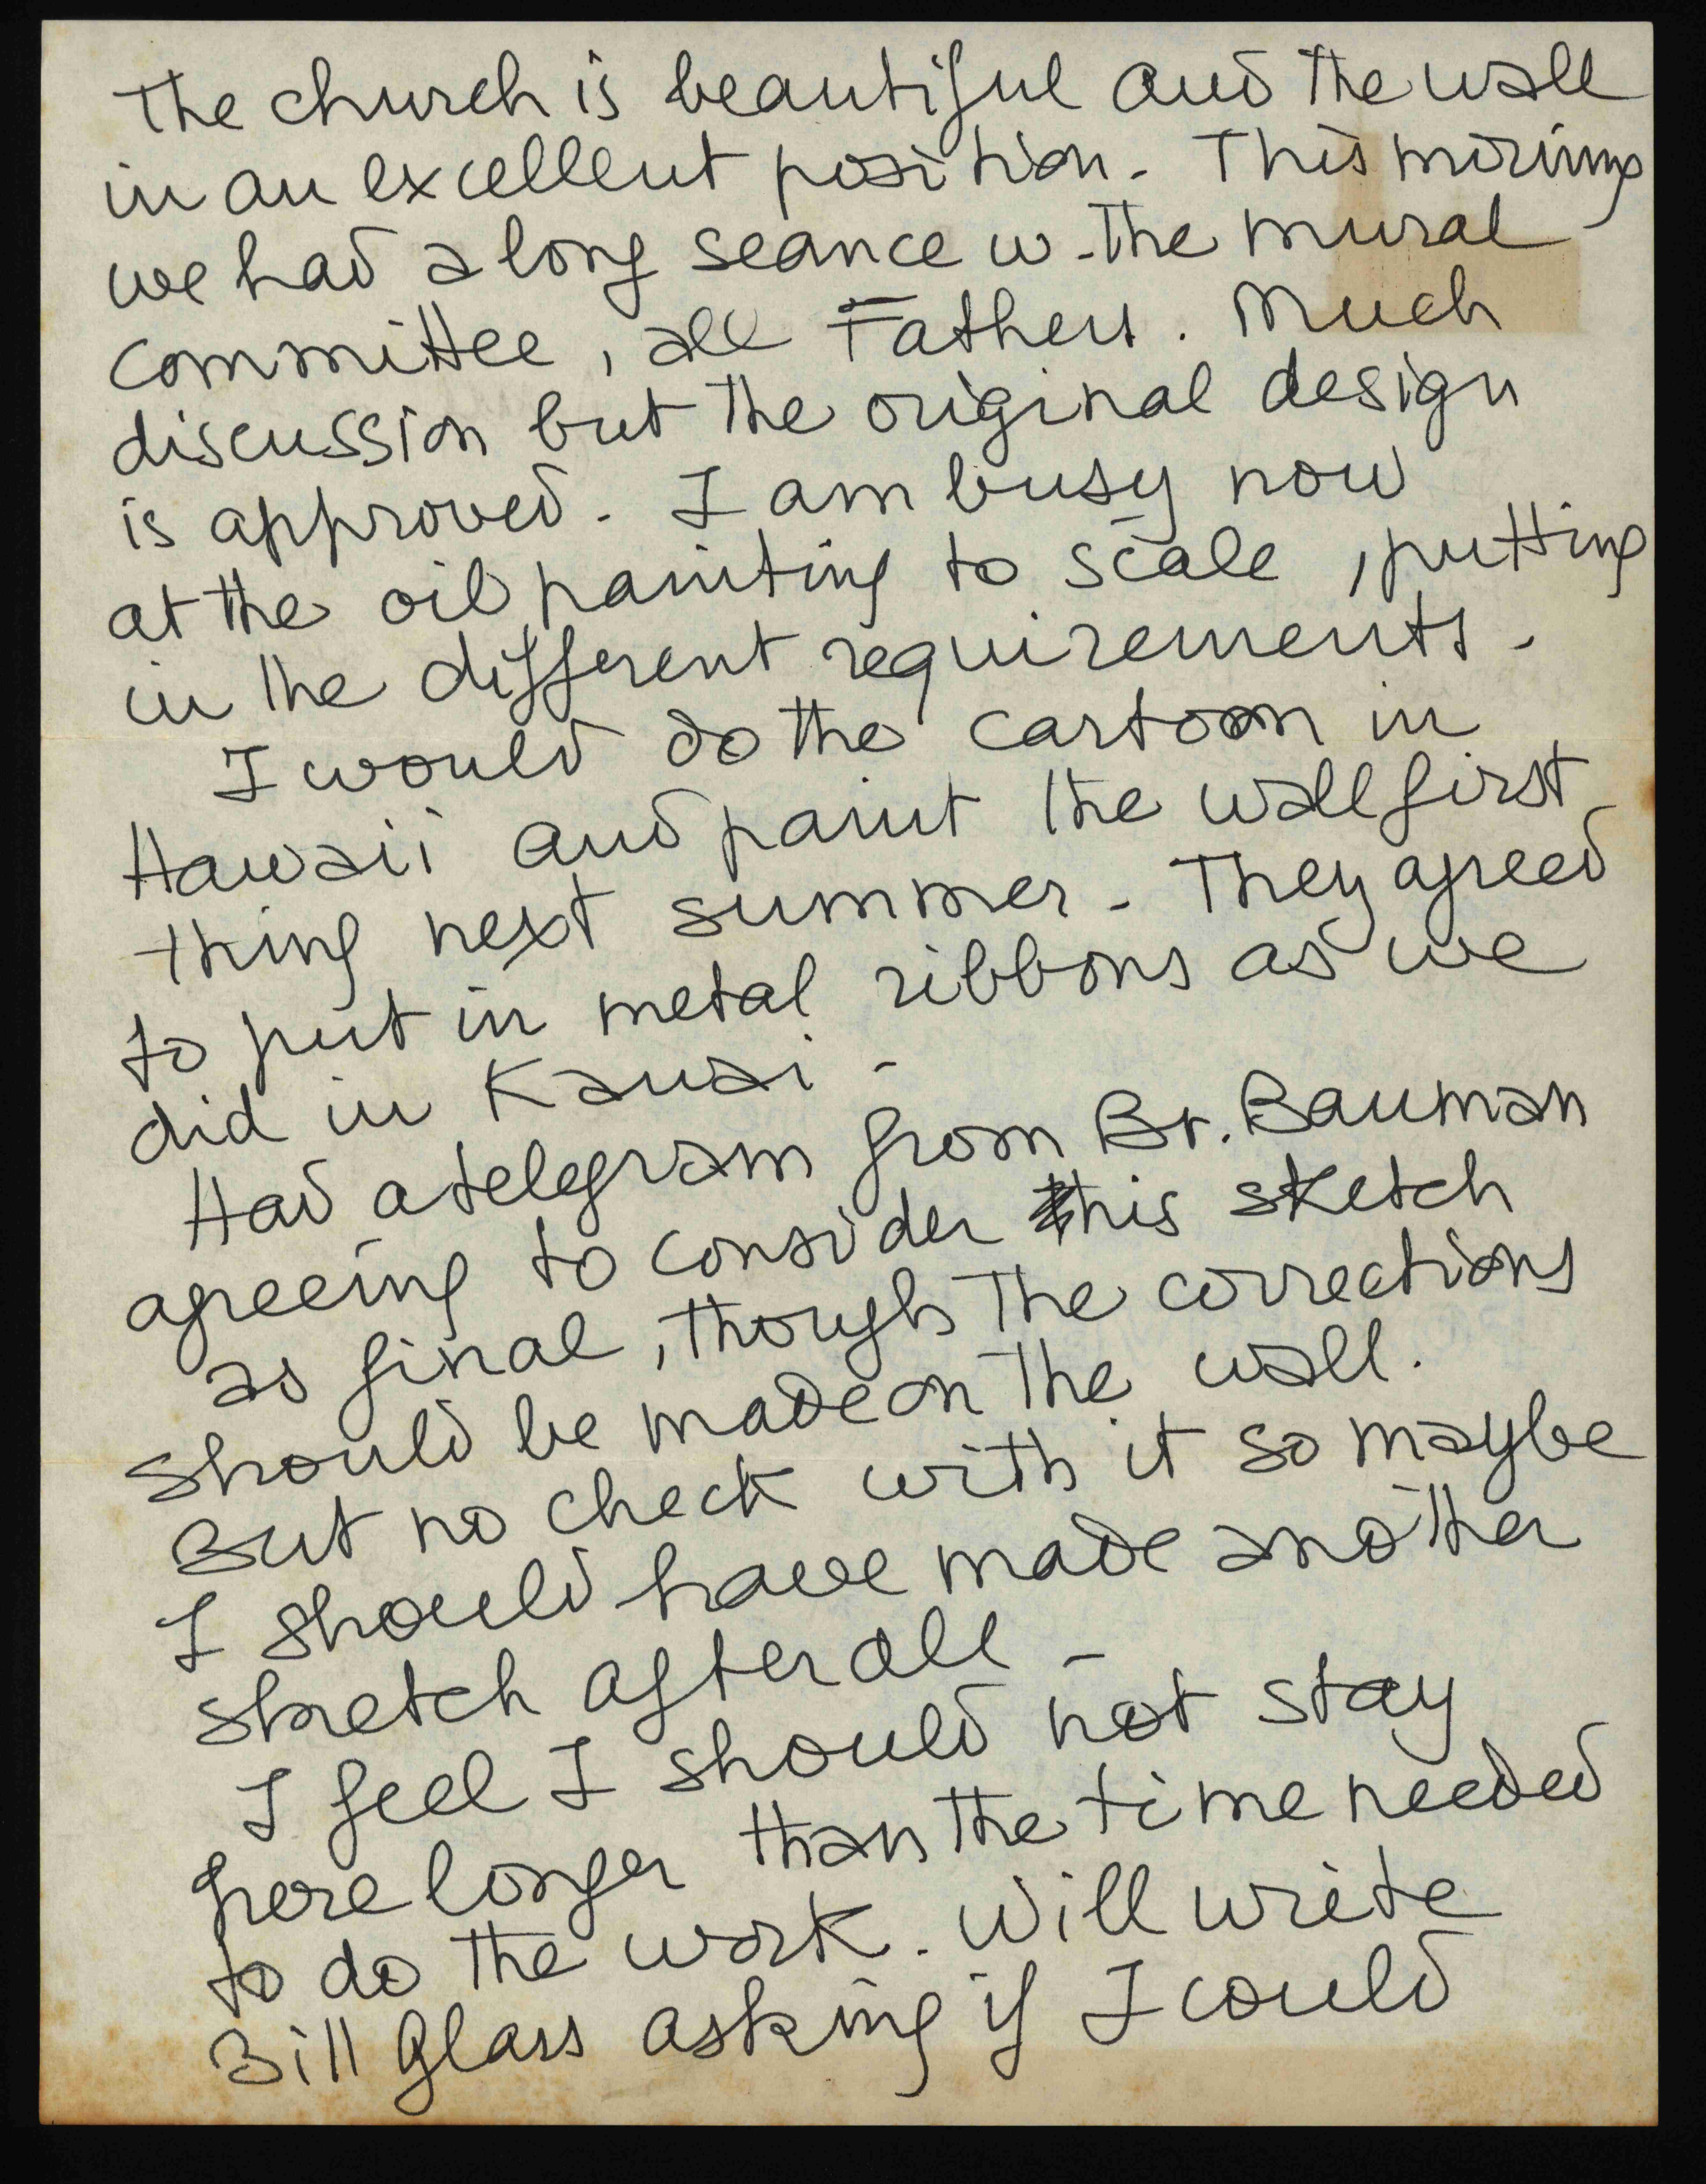 The church is beautiful and the wall
in an excellent position. This morning
we had a long seance w. the mural
committee, all Fathers. Much
discussion but the original design
is approved. I am busy now
at the oil painting to scale, putting
in the different requirements.
I would do the cartoon in
Hawaii and paint the wall first
thing next summer. They agreed
to put in metal ribbons as we
did in Kauai.
Had a telegram from Br. Bauman
agreeing to consider this sketch
as final, though the corrections
should be made on the wall.
But no check with it so maybe
I should have made another
sketch after all.
I feel I should not stay
here longer than the time needed
to do the work. Will write
Bill Glass asking if I could